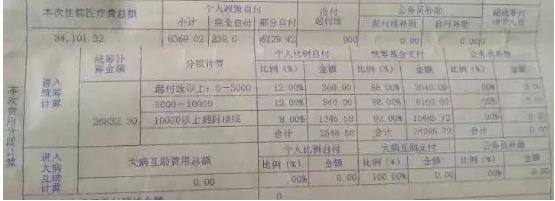 本次住院医疗费总额 个人政策自付 公务员补助
小计 完全自付 部分自付 起付线 起付线补助 自付补助
34,101.32 6369.02 239.6 6129.42 900 0.00 0.00
本次费用分段计算
进入统筹计算 统筹计算金额 分段计算 个人比例自付 统筹基金支付 公务员补助
比例(%) 金额 比例(%) 金额 比例(%) 金额
26832.30
起付线以上:0-3000 12.00% 360.00 88.00% 2640.00 .00% 0.00
3000-10000 12.00% 840.00 88.00% 6160.00 .00% 0.00
10000以上到封顶线 8.00% 1346.58 92.00% 15485.72 .00% 0.00
合计 2546.58 合计 24285.72 合计 0.00
进入大病互助计算 大病互助费用总额 个人比例自付 大病互助支付 公务员补助
比例(%) 金额 比例(%) 金额 比例(%) 金额
0.00 .00% 0.00 100.00% 0.00 .00% 0.00
0